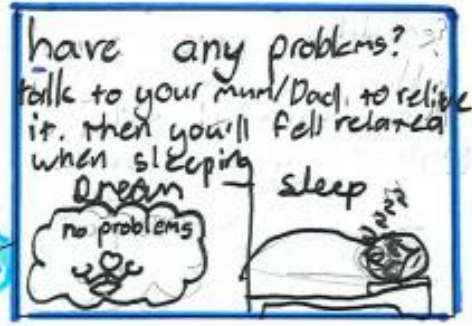 have any problems?
talk to your mum/Dad. to relive
it. then you'll fell relaxed
when sleeping
Dream
sleep
no problems
zzzz